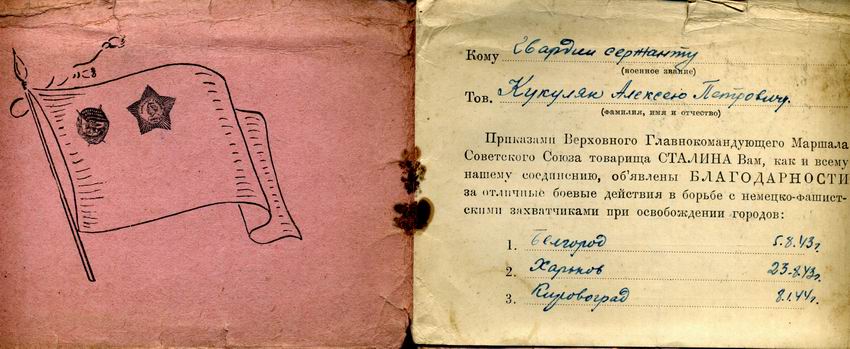 Кому Гвардии сержанту
(военное звание)
Тов. Кукуляк Алексею Петровичу.
(фамилия, имя и отчество)
Приказами Верховного Главнокомандующего Маршала
Советского Союза товарища СТАЛИНА Вам, как и всему
нашему соединению, об'явлены БЛАГОДАРНОСТИ
за отличные боевые действия в борьбе с немецко-фашист-
скими захватчиками при освобождении городов:
1. Белгород 5.8.43г.
2. Харьков 23.8.43г.
3. Кировоград 8.1.44г.